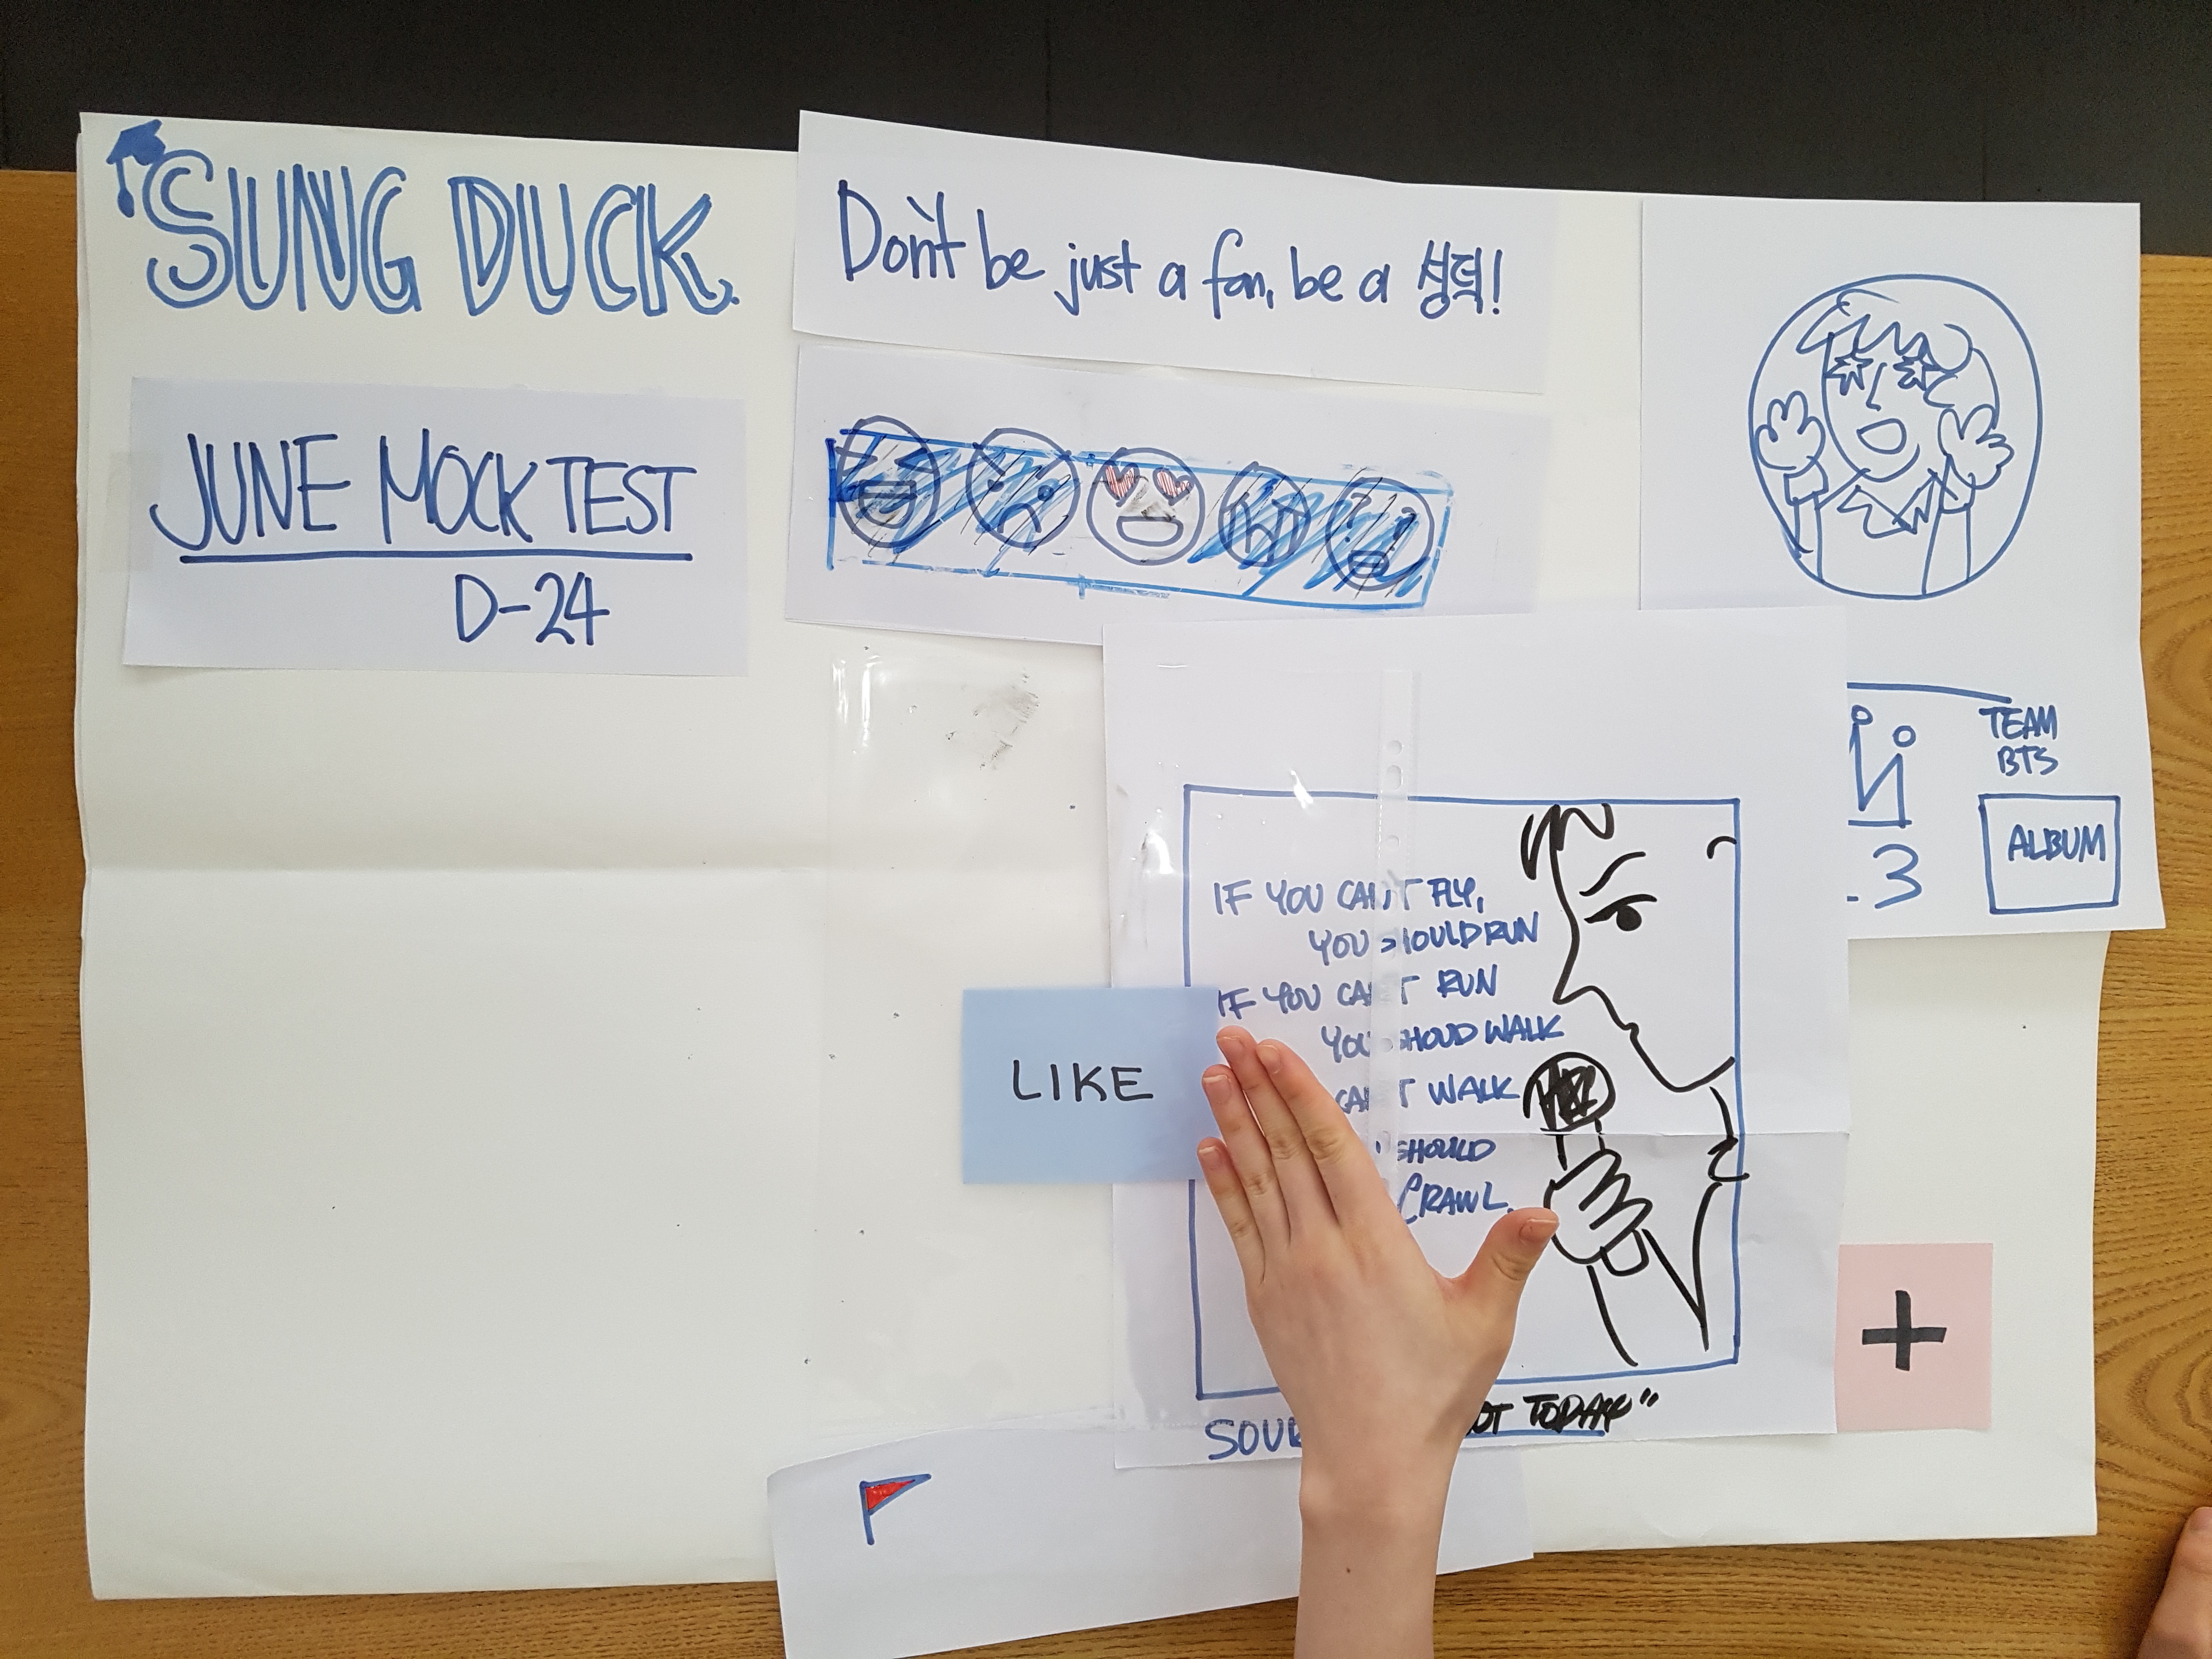 SUNG DUCK.
Don't be just a fan, be a 성덕!
JUNE MOCK TEST
D-24
TEAM
BTS
ALBUM
.3
IF YOU CAN'T FLY,
YOU SHOULD RUN
IF YOU CAN'T RUN
YOU SHOUD WALK
CAN'T WALK
SHOULD
CRAWL.
LIKE
+
TODAY"